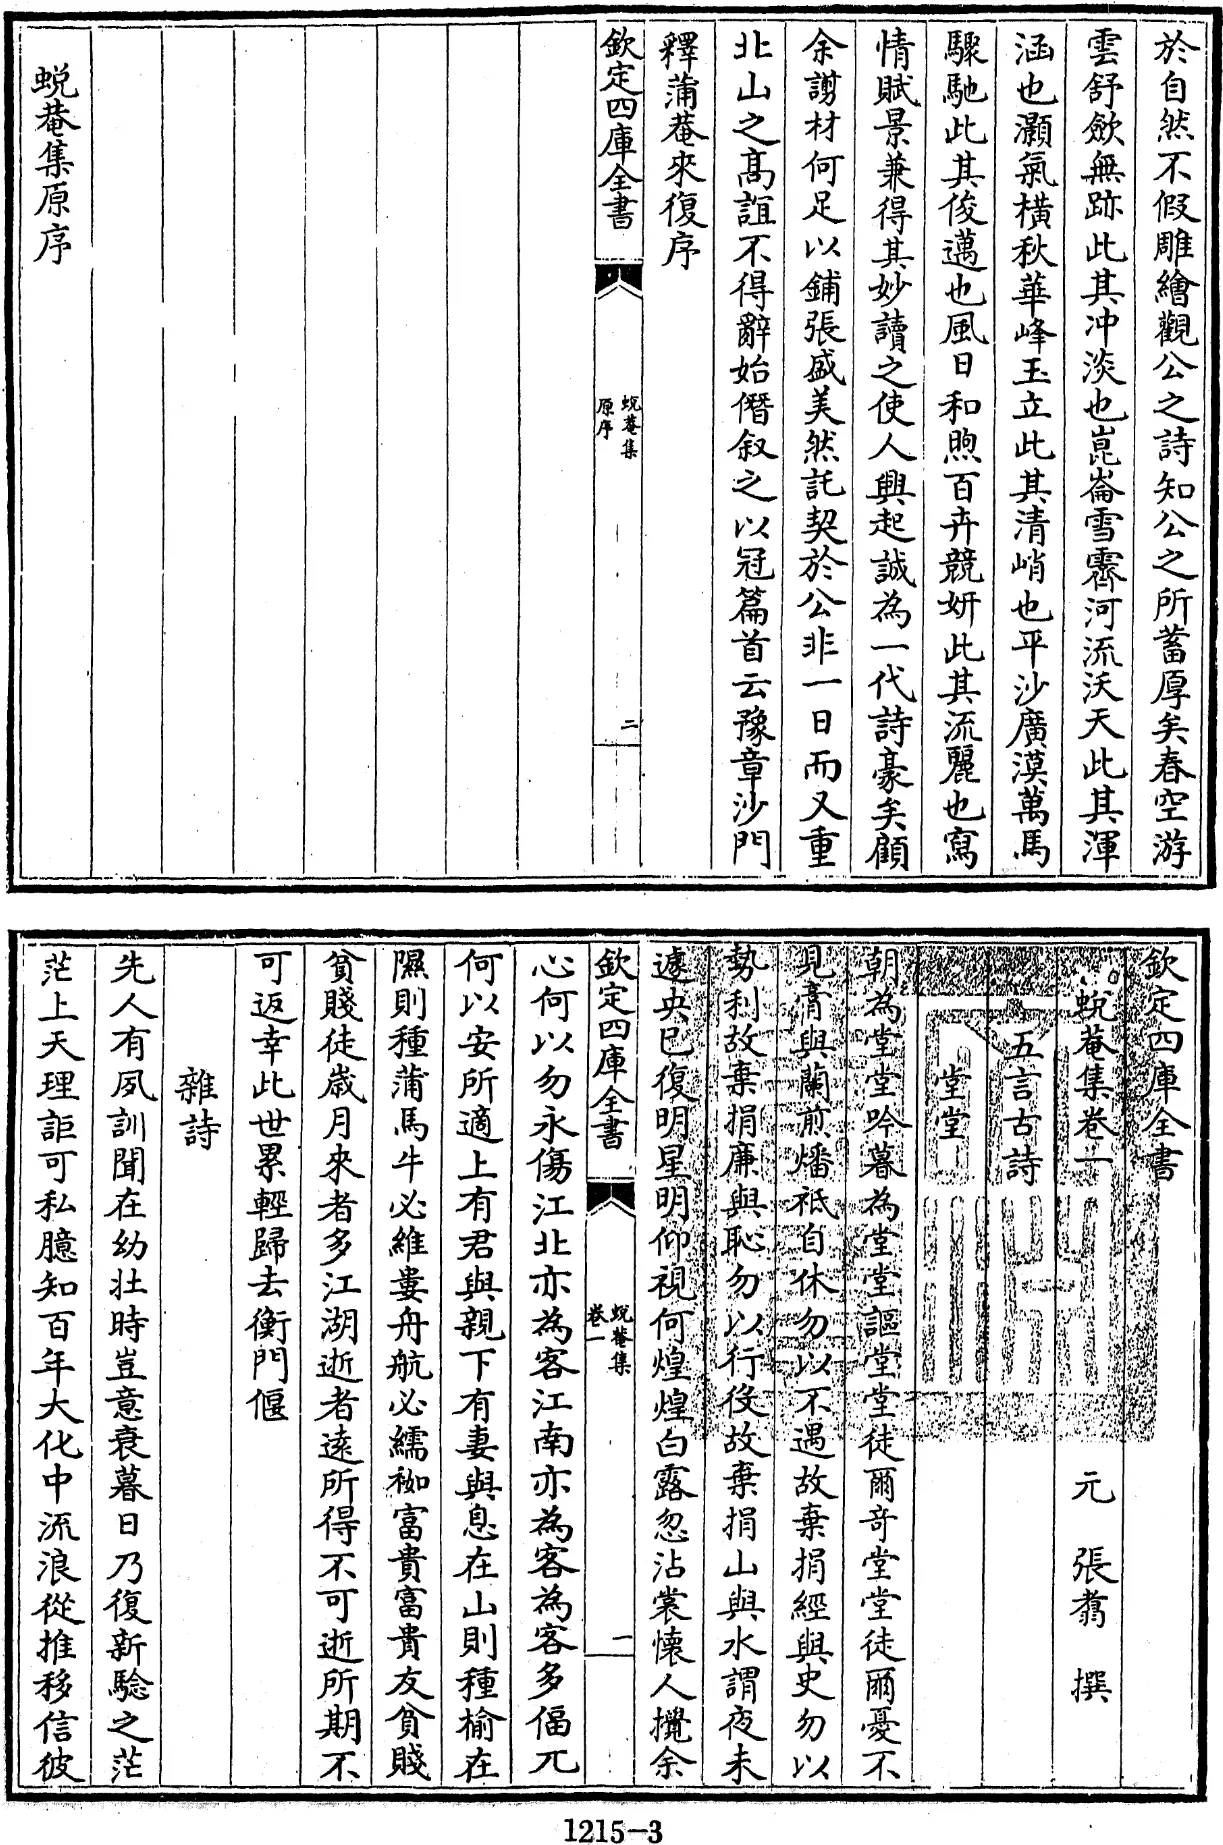 於自然不假雕繪觀公之詩知公之所蓄厚矣春空游
雲舒歛無跡此其冲淡也崑崙雪霽河流沃天此其渾
涵也灝氣橫秋華峰玉立此其清峭也平沙廣漠萬馬
驟馳此其俊邁也風日和煦百卉競妍此其流麗也寫
情賦景兼得其妙讀之使人興起誠為一代詩豪矣顧
余謭材何足以鋪張盛美然託契於公非一日而又重
北山之髙誼不得辭始僭叙之以冠篇首云豫章沙門
釋蒲菴來復序
欽定四庫全書
蛻菴集
原序
二
蛻菴集原序
欽定四庫全書
蛻菴集卷一
元 張翥 撰
五言古詩
堂堂
朝為堂堂吟暮為堂堂謳堂堂徒爾竒堂堂徒爾憂不
見膏與蘭煎燔祇自休勿以不遇故棄捐經與史勿以
勢利故棄捐廉與恥勿以行役故棄捐山與水謂夜未
遽央已復明星明仰視何煌煌白露忽沾裳懷人攪余
欽定四庫全書
蛻菴集
卷一
一
心何以勿永傷江北亦為客江南亦為客為客多偪兀
何以安所適上有君與親下有妻與息在山則種榆在
隰則種蒲馬牛必維婁舟航必繻袽富貴富貴友貧賤
貧賤徒歲月來者多江湖逝者逺所得不可逝所期不
可返幸此世累輕歸去衡門偃
雜詩
先人有夙訓聞在幼壯時豈意衰暮日乃復新驗之茫
茫上天理詎可私臆知百年大化中流浪從推移信彼
1215-3